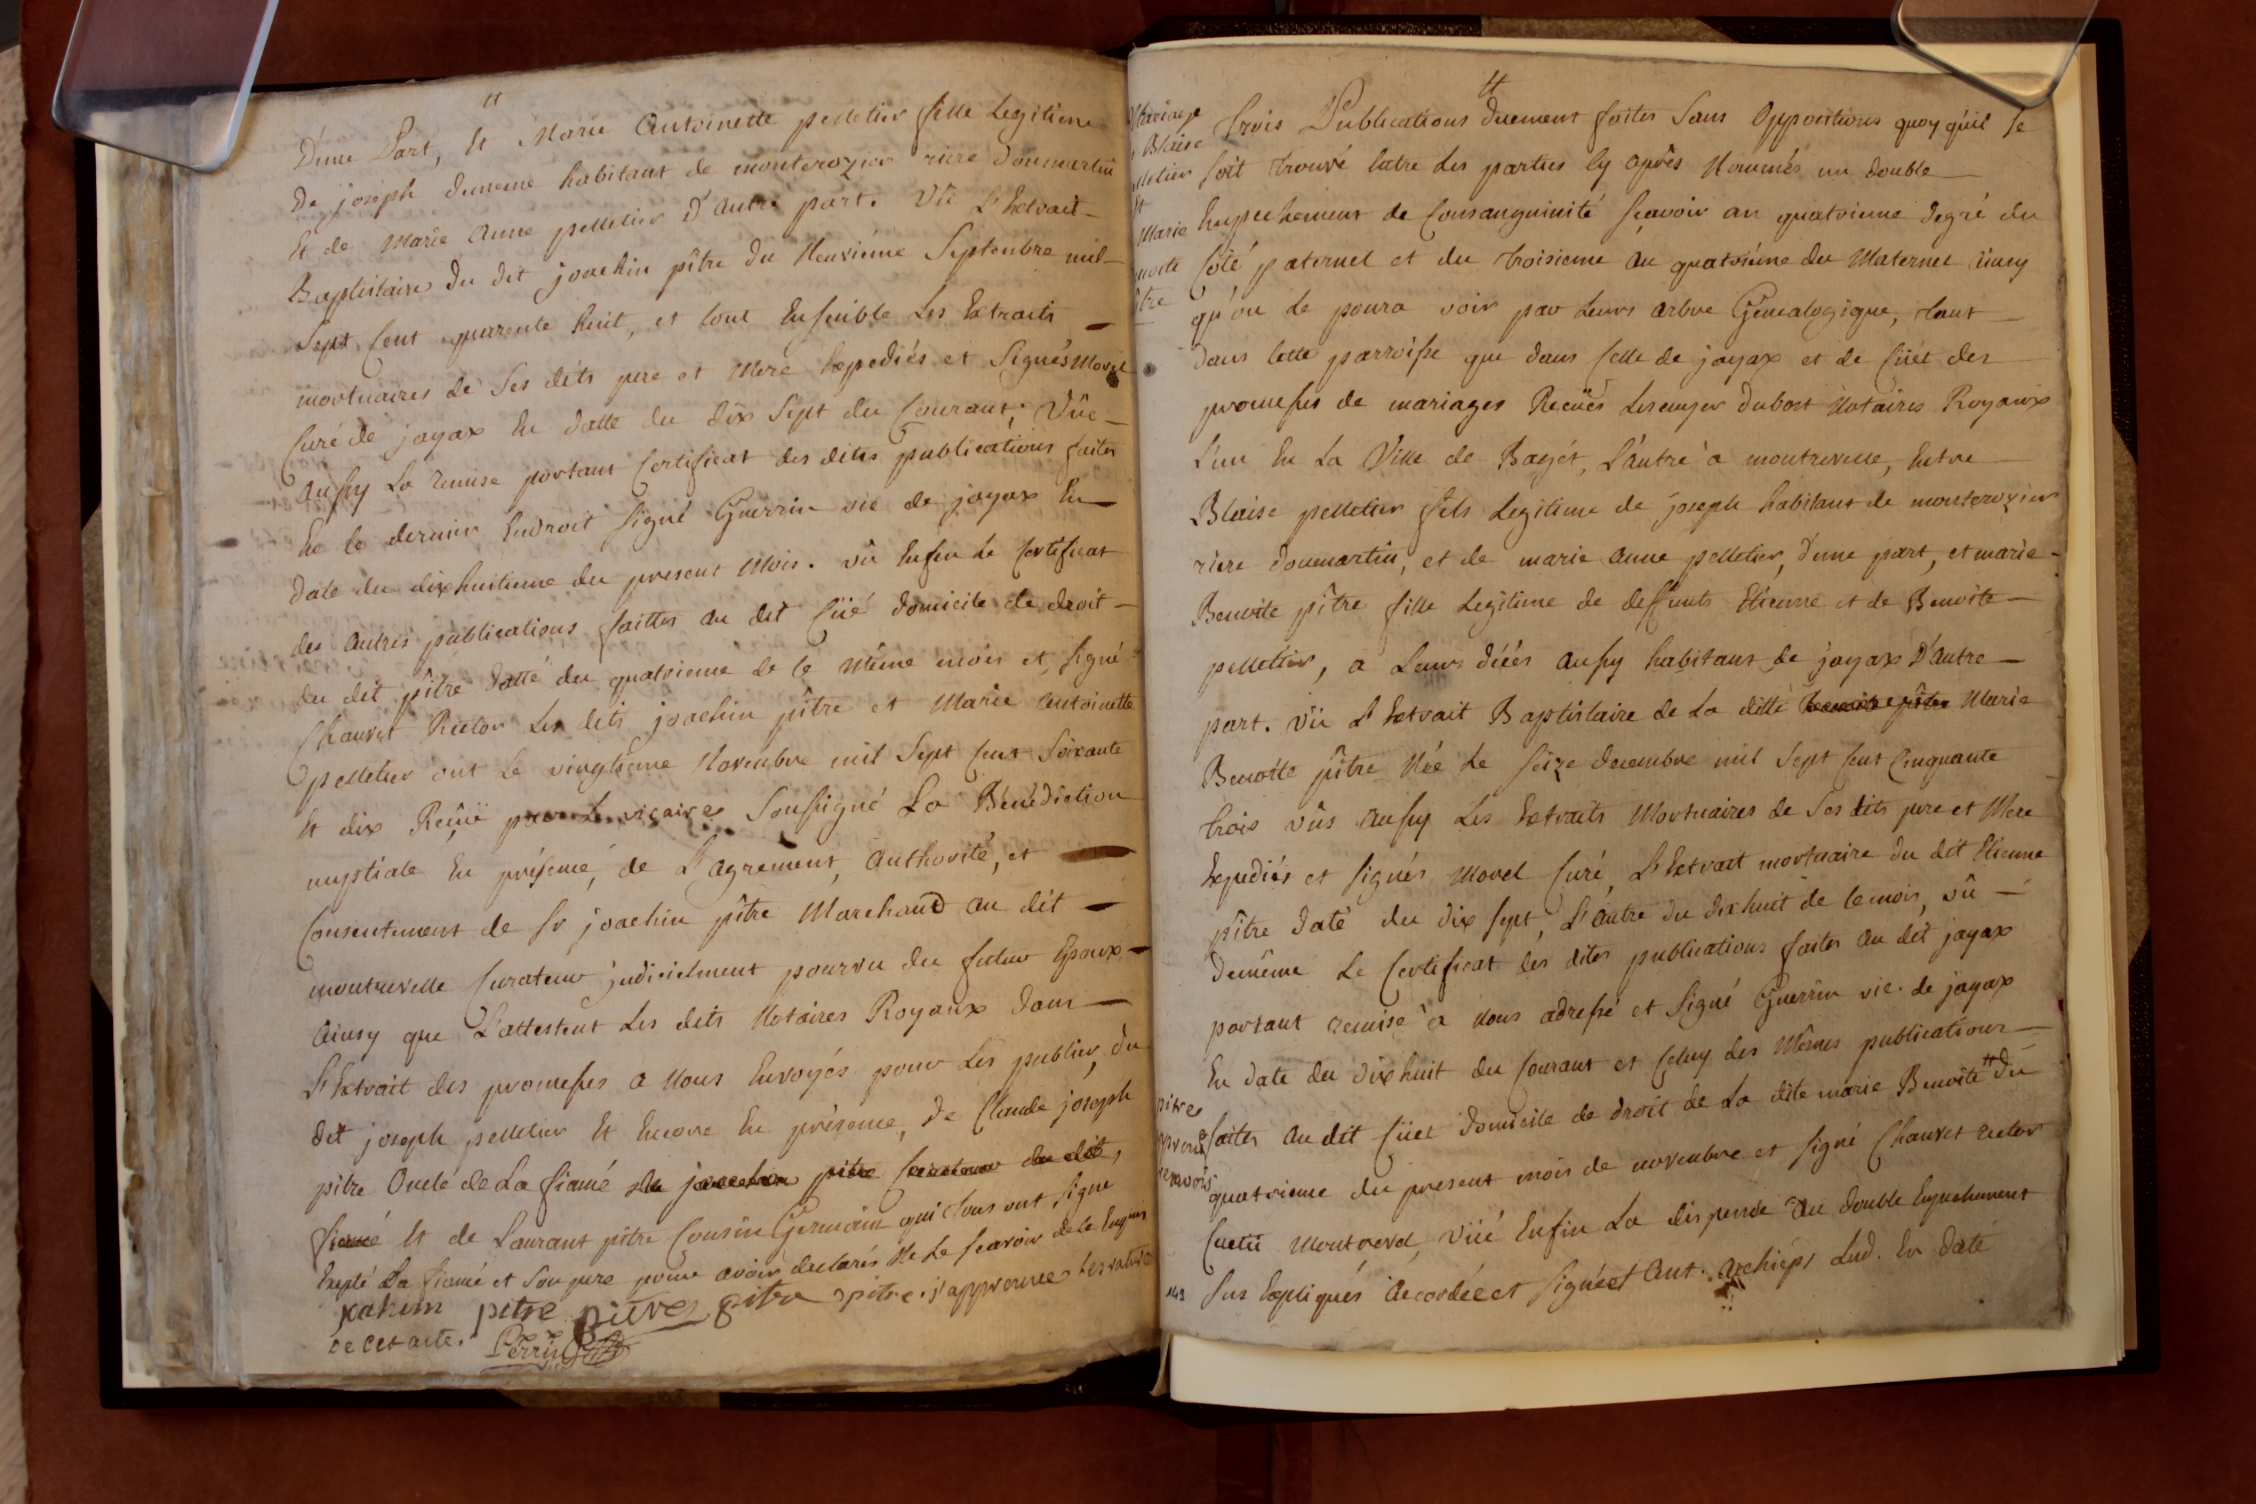 D'une Part, Et Marie Antoinette pelletier fille Legitime
De joseph dememe habitant de monterozier riere Dommartin
Et de Marie Anne pelletier D'autre part. Vû L'Extrait
Baptistaire du dit joachin pître du Neuvième Septembre mil
Sept Cent quarente huit, et tout Ensemble Les Extraits
mortuaires de Ses dits pere et Mere Expediés et Signés Morel
Curé de jayax En datte du dix Sept du Courant; Vûe
aussy La remise portant Certificat des dites publications faites
En le dernier Endroit Signé Guerrin vic de jayax En
date du dixhuitieme du present Mois. vû Enfin Le Certificat
des autres publications faittes au dit domicile de droit
du dit pître datté du quatrieme de Ce Même mois et Signé
Chauvet Rector Les dits joachin pître et Marie Antoinette
pelletier ont Le vingtieme Novembre mil Sept Cent Soixante
Et dix Reçüe par Le vicaire Soussigné La Bénédiction
nuptiale En présence, de L'agrement, Authorité, et
Consentement de Sr joachin pître Marchand au dit
montrevelle Curateur judicielment pourvu du futur Epoux
Ainsy que L'attestent Les dits Notaires Royaux dans
L'Extrait des promesses a Nous Envoyés pour Les publier, du
dit joseph pelletier Et Encore En présence, de Claude joseph
pitre Oncle de La fiancé du joachin pitre Curateur du dit,
fiancé Et de Laurant pitre Cousin Germain qui tous ont Signé
Excepté La fiancé et Son pere pour avoir declarés Ne Le Scavoir de Ce Enquis
joahim pitre pitre pitre pitre j'approuve Les ratures
de cet acte. Perrin
Mariage
Blaise
Pelletier
Et
Marie
Benoite
pître
Trois Publications duement faites Sans Oppositions quoy qu'il Se
Soit trouvé Entre Les parties Cy Après Nommés un double
Empechement de Consanguinité Sçavoir au quatrieme degré du
Côté paternel et du troisieme au quatrième du Maternel ainsy
qu'on Le poura voir par Leurs arbre Genealogique, tant
dans Cette parroisse que dans Celle de jayax et de des
promesses de mariages Reçües dubost Notaires Royaux
L'un En La Ville de Bagét, L'autre à montrevelle, Entre
Blaise pelletier fils Legitime de joseph habitant de monterozier
riere dommartin, et de marie anne pelletier, d'une part, et marie
Benoite pître fille Legitime de deffunts Etienne et de Benoite
pelletier, a Leurs décés aussy habitans de jayax D'autre
part. vû L'Extrait Baptistaire de La ditte Benoite pître Marie
Benoite pître Née Le Seize decembre mil Sept Cent Cinquante
trois vûs aussy Les Extraits Mortuaires de Ses dits pere et Mere
Expediés et Signés Morel Curé, L'Extrait mortuaire du dit Etienne
pître daté du dix Sept, L'autre du dixhuit de Ce mois, vû
demême Le Certificat des dites publications faites au dit jayax
portant remise à Nous adressé et Signé Guerrin vic. de jayax
En date du dixhuit du Courant et Celuy des Mêmes publications
faites au dit domicile de droit de La dite marie Benoite du
quatrieme du present mois de novembre et Signé Chauvet rector
Montrevel, Vüé Enfin La dispense du double Empechement
Sus Expliqués Accordée et Signée Ant. archieps Lud. En date
pitre
approuvé
renvois
143